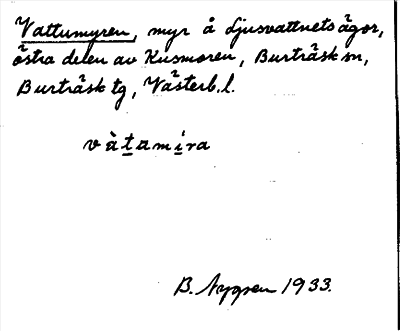 Vattumyren, myr å Ljusvattnets ägor,
östra delen av Kusmoren, Burträsk sn,
Burträsk tg, Västerb. l.
vàtamira
B. Nygren 1933.